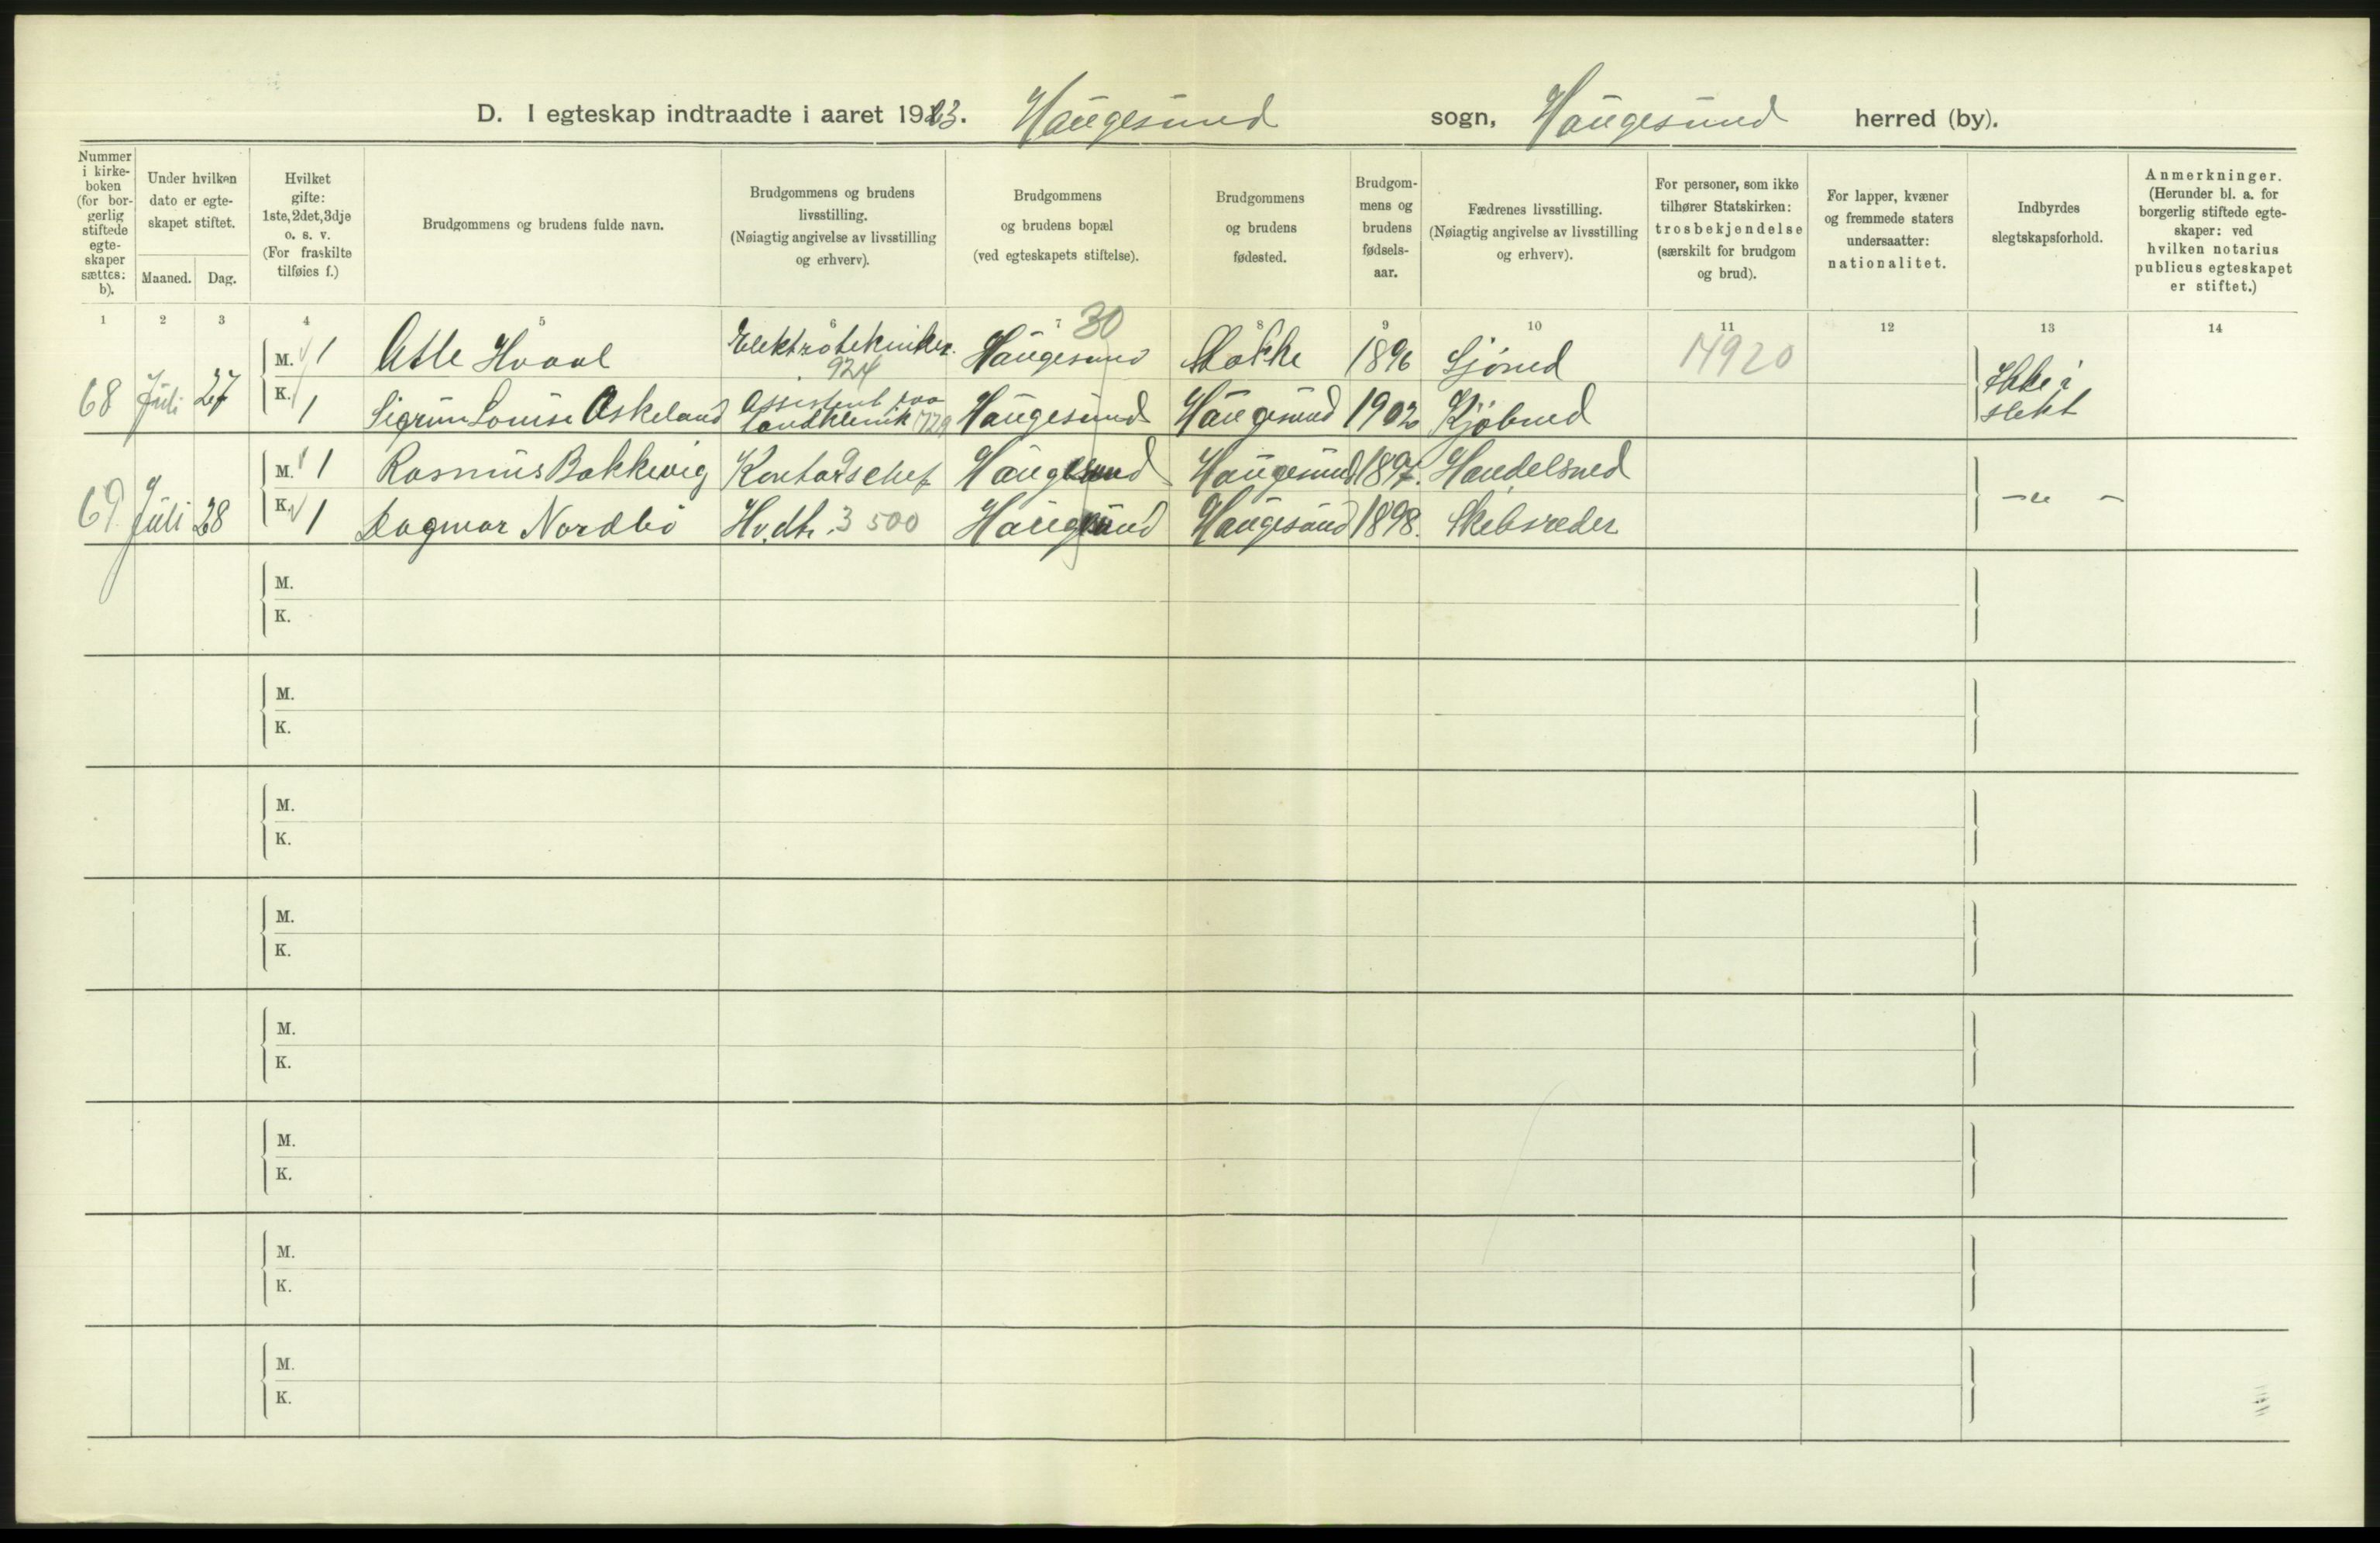 D. I egteskap indtraadte i aaret 1923. Haugesund sogn, Haugesund herred (by).
Nummer i kirke-boken (for bor-gerlig stiftede egte-skaper sættes: b).
Under hvilken dato er egte-skapet stiftet.
Maaned. Dag.
Hvilket gifte: 1ste, 2det, 3dje o. s. v. (For fraskilte tilføies f.)
Brudgommens og brudens fulde navn.
Brudgommens og brudens livsstilling. (Nøiagtig angivelse av livsstilling og erhverv).
Brudgommens og brudens bopæl (ved egteskapets stiftelse).
Brudgommens og brudens fødested.
Brudgom-mens og brudens fødsels-aar.
Fædrenes livsstilling. (Nøiagtig angivelse av livsstilling og erhverv).
For personer, som ikke tilhører Statskirken: trosbekjendelse (særskilt for brudgom og brud).
For lapper, kvæner og fremmede staters undersaatter: nationalitet.
Indbyrdes slegtskapsforhold.
Anmerkninger. (Herunder bl. a. for borgerlig stiftede egte-skaper: ved hvilken notarius publicus egteskapet er stiftet.)
1 2 3 4 5 6 7 8 9 10 11 12 13 14
30
68 Juli 27 M. 1 Atle Hvaal Elektrotekniker. 924 Haugesund Stokke 1896 Gjörmd 14920 Ikke i slekt
K. 1 Sigrun Louise Askeland Assistent paa tandklinik 729 Haugesund Haugesund 1902 Kjöbmd
69. Juli 28 M. 1 Rasmus Bakkevig Kontorschef Haugesund Haugesund 1897. Handelsmd -"-
K. 1 Dagmar Nordbö Hv.dt. 3 500 Haugesund Haugesund 1898. Skibsreder
M.
K.
M.
K.
M.
K.
M.
K.
M.
K.
M.
K.
M.
K.
M.
K.